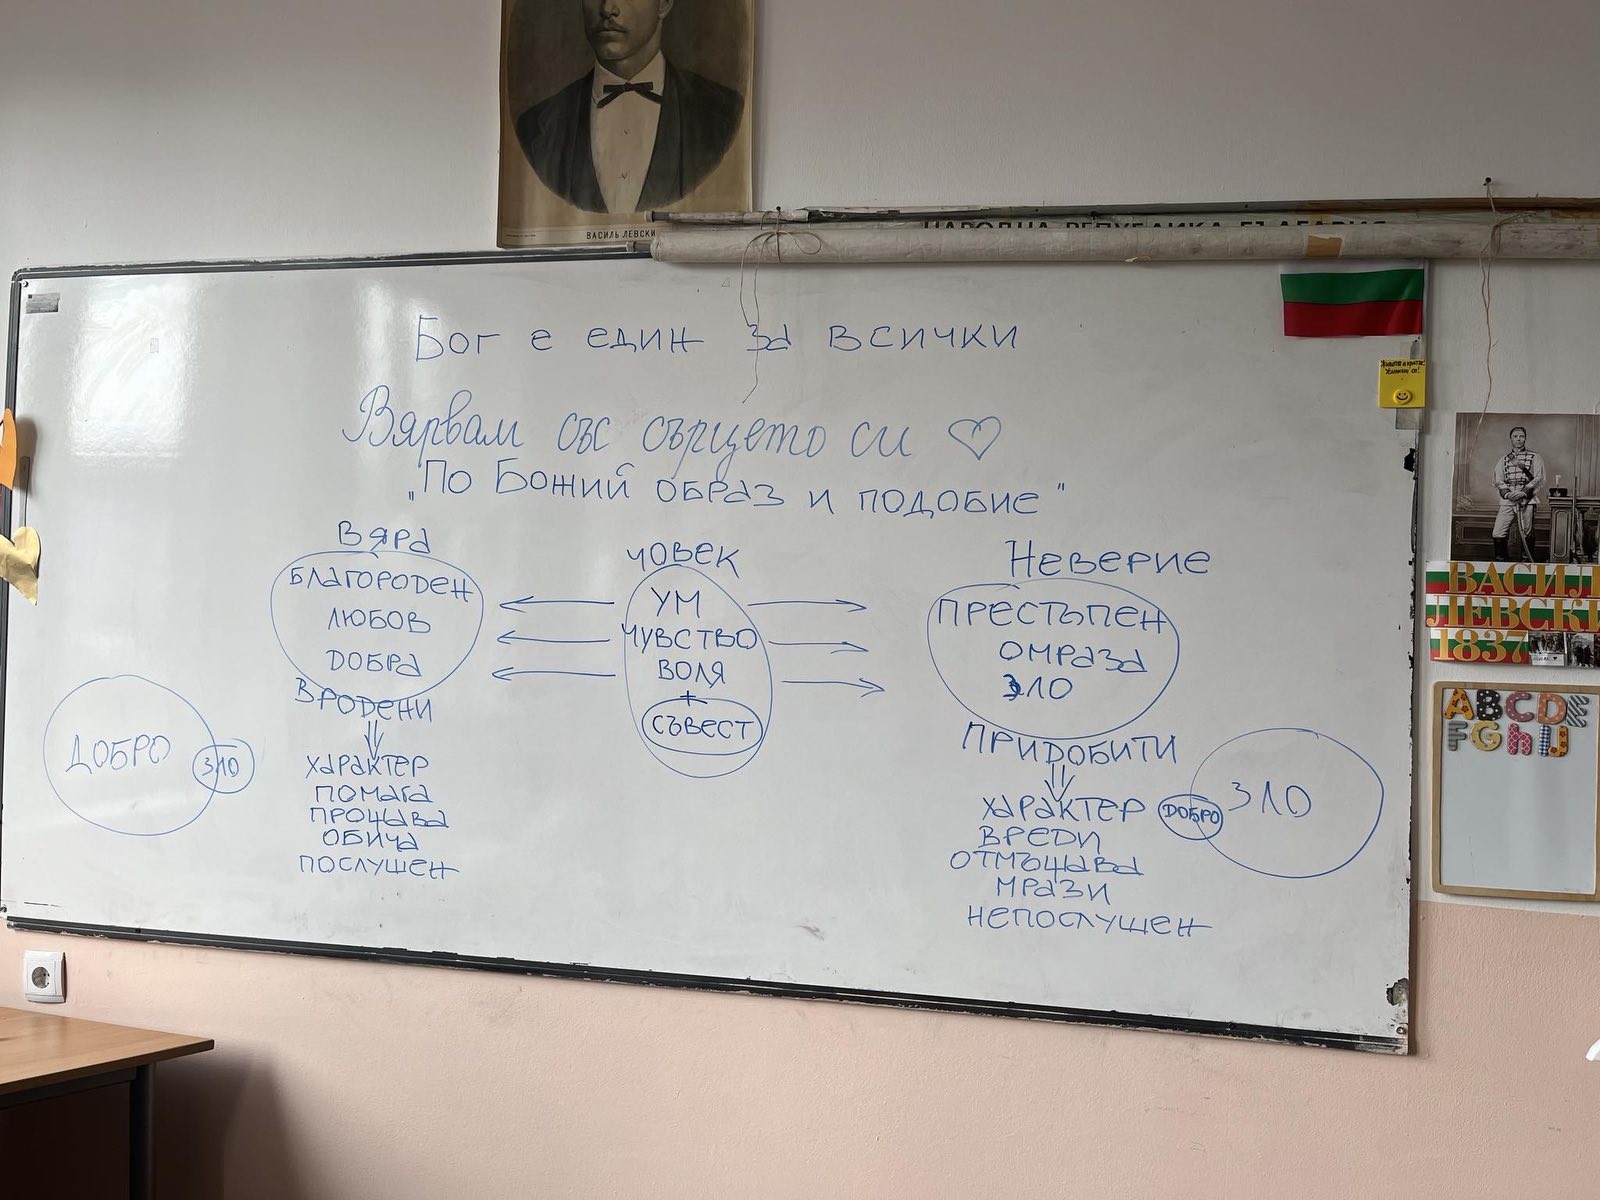 ВАСИЛЪ ЛЕВСКИ
НАРОДНА РЕПУБЛИКА БЪЛГАРИЯ
Бог е един за всички
Вярвам със сърцето си ♡
„По Божий образ и подобие"
Вяра
БЛАГОРОДЕН
ЛЮБОВ
ДОБРА
ВРОДЕНИ
ХАРАКТЕР
ПОМАГА
ПРОЩАВА
ОБИЧА
ПОСЛУШЕН
ДОБРО
ЗЛО
ЧОВЕК
УМ
ЧУВСТВО
ВОЛЯ
+
СЪВЕСТ
НЕВЕРИЕ
ПРЕСТЪПЕН
ОМРАЗА
ЗЛО
ПРИДОБИТИ
ХАРАКТЕР
ВРЕДИ
ОТМЪЩАВА
МРАЗИ
НЕПОСЛУШЕН
ДОБРО
ЗЛО
ВАСИЛ
ЛЕВСКИ
1837
ABCDE
FGHIJ